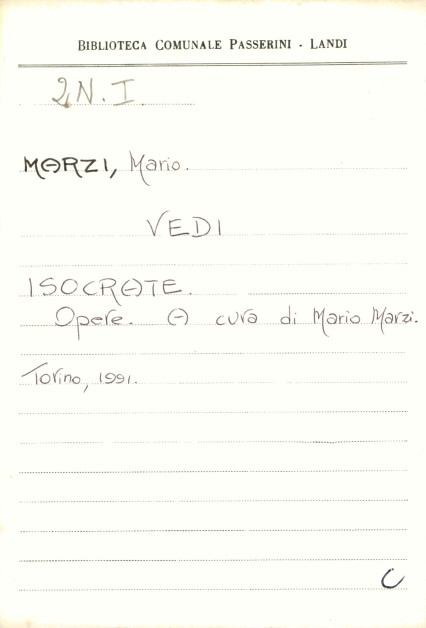 BIBLIOTECA COMUNALE PASSERINI - LANDI
2N.I.
MARZI, Mario.
VEDI
ISOCRATE.
Opere. A cura di Mario Marzi.
Torino, 1991.
C